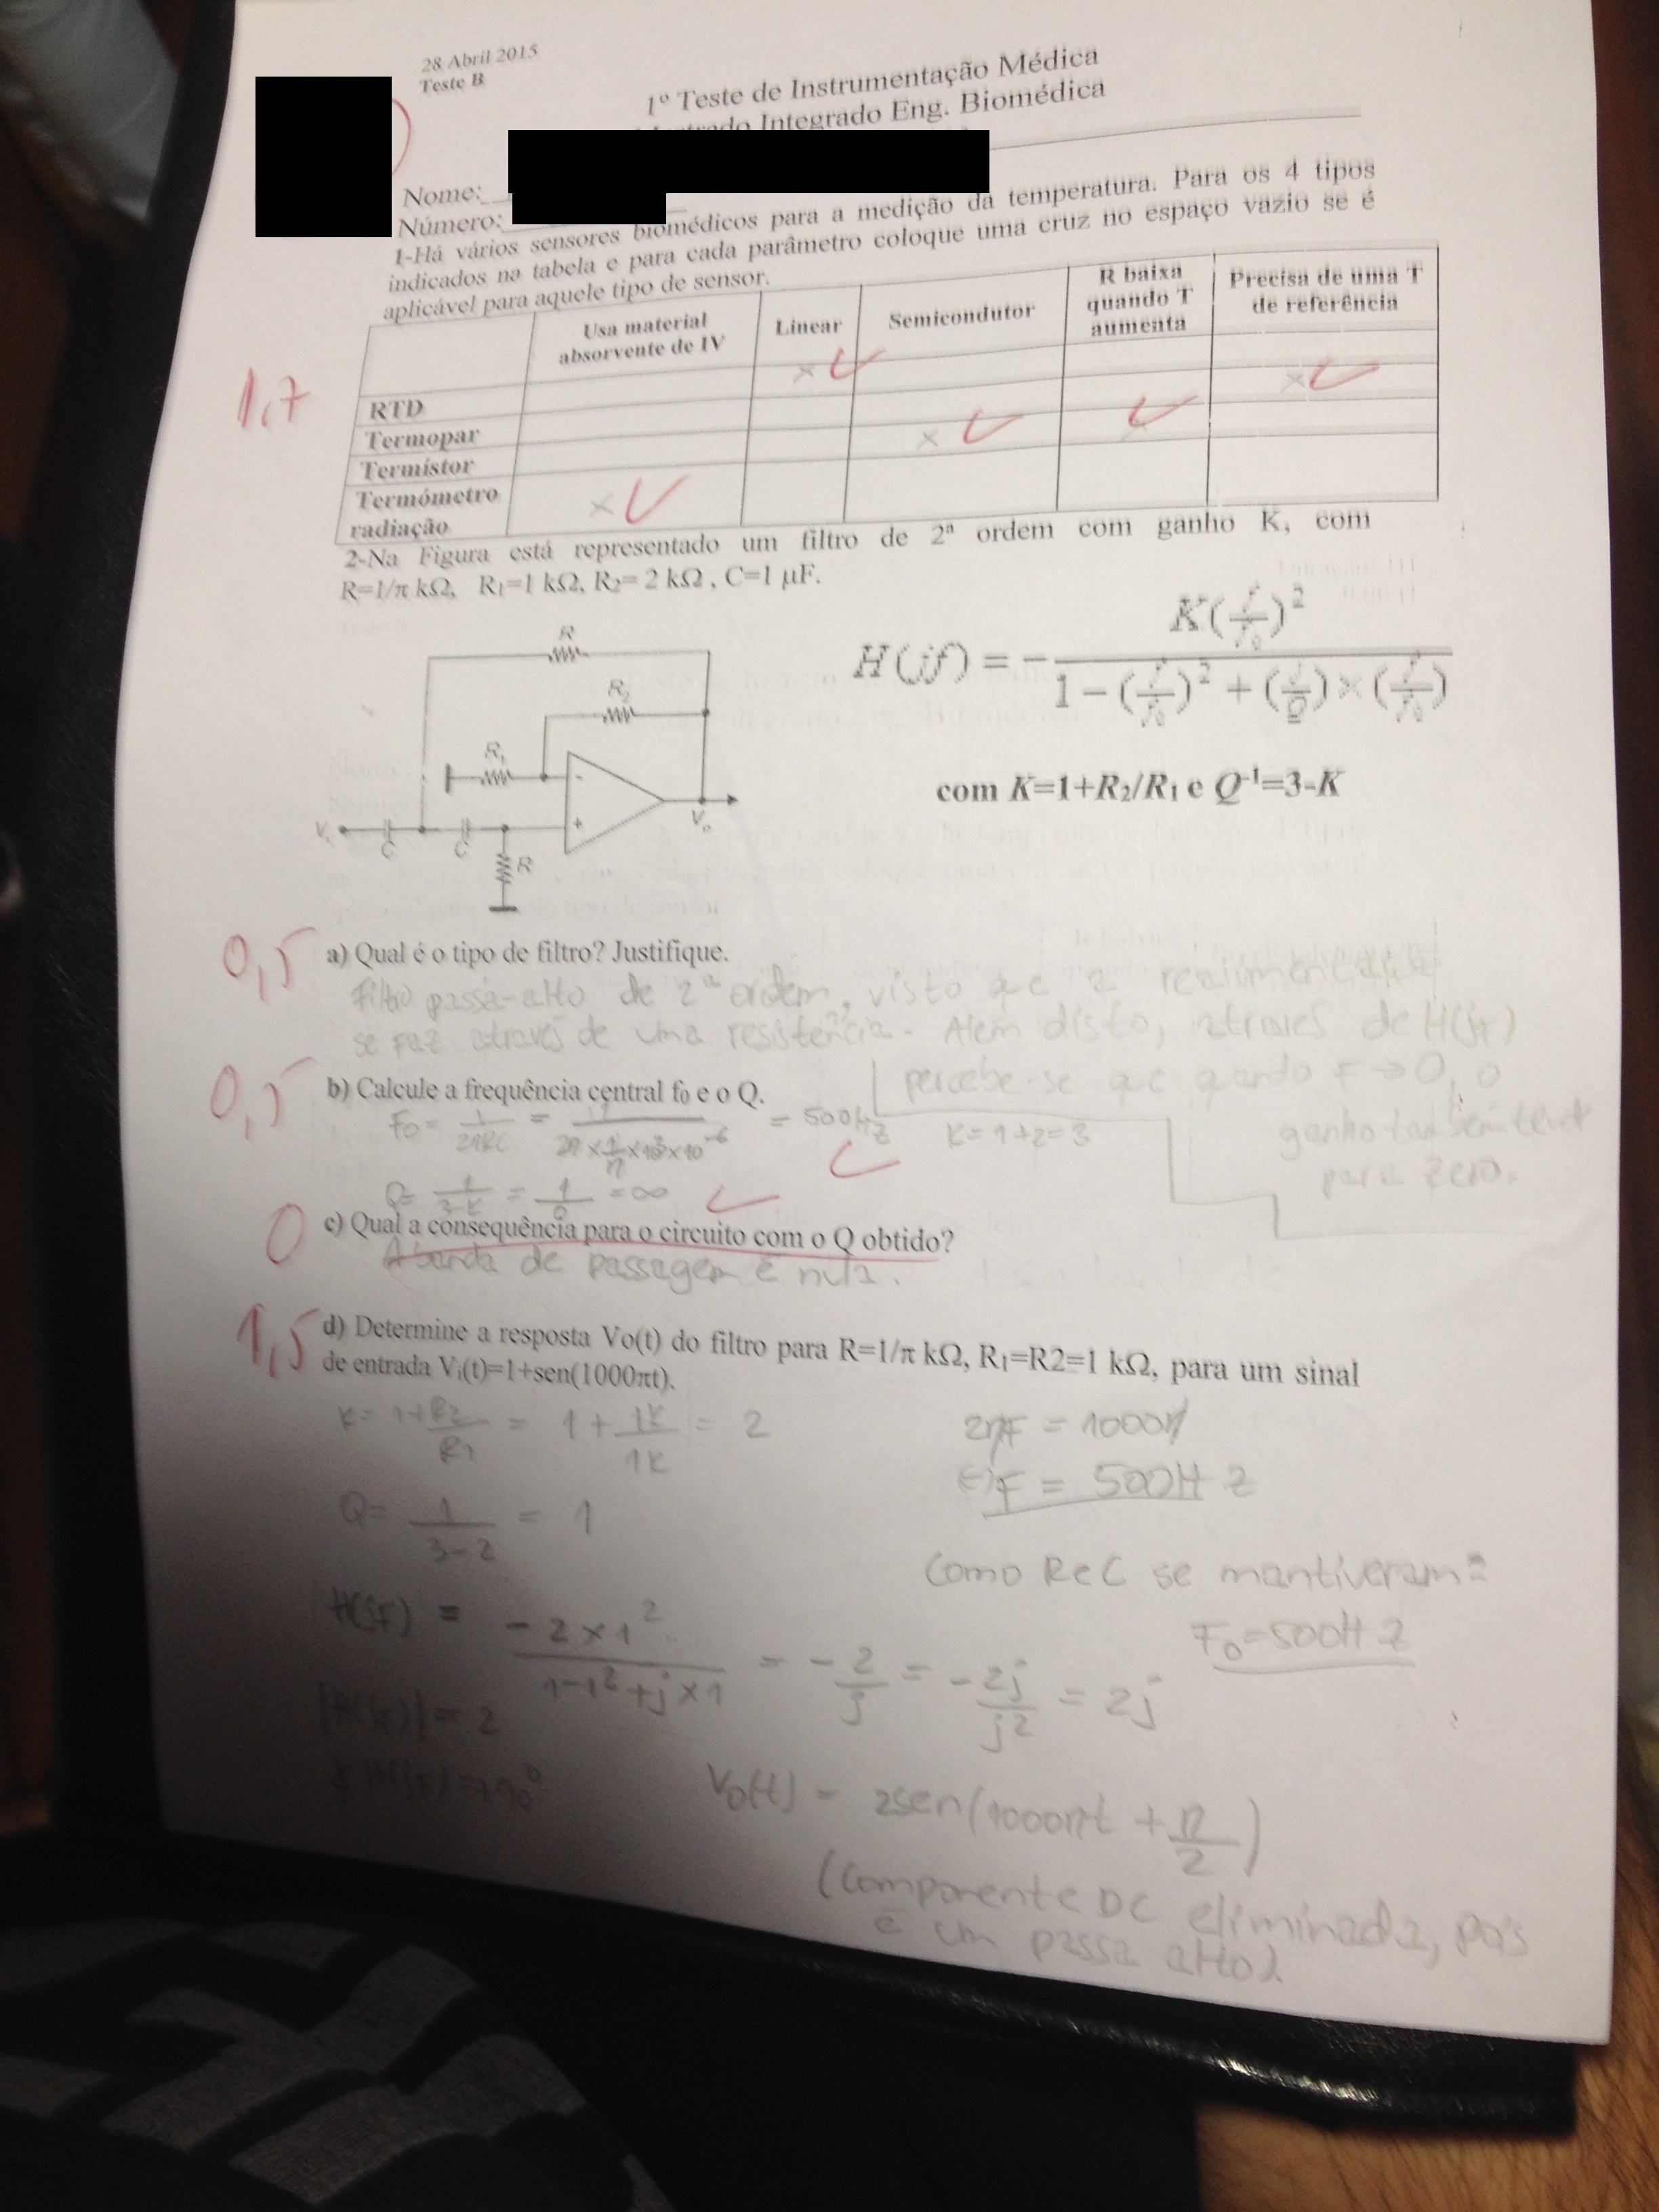 28 Abril 2015
Teste B
1º Teste de Instrumentação Médica
Integrado Eng. Biomédica
Nome:
Número:
1-Há vários sensores biomédicos para a medição da temperatura. Para os 4 tipos
indicados na tabela e para cada parâmetro coloque uma cruz no espaço vazio se é
aplicável para aquele tipo de sensor.
Usa material absorvente de IV
Linear
Semicondutor
R baixa quando T aumenta
Precisa de uma T de referência
1,7
RTD
× 
Termopar
×
Termístor
× ×
Termómetro radiação
×
2-Na Figura está representado um filtro de 2ª ordem com ganho K, com
R=1/π kΩ, R1=1 kΩ, R2= 2 kΩ , C=1 µF.
R
R2
R1
-
+
Vi
C
C
R
Vo
H(jf) = - K(f/f0)² / 1-(f/f0)²+(j/Q)×(f/f0)
com K=1+R2/R1 e Q-1=3-K
0,5
a) Qual é o tipo de filtro? Justifique.
Filtro passa-alto de 2ª ordem, visto que a realimentação
se faz através de uma resistência. Além disto, através de H(jf)
percebe-se que quando F→0, o
ganho também tende
para zero.
0,5
b) Calcule a frequência central f0 e o Q.
F0 = 1/2πRC = 1/2π×1/π×10³×10-6 = 500Hz
K = 1+2=3
Q= 1/3-K = 1/0 = ∞
0
c) Qual a consequência para o circuito com o Q obtido?
A banda de passagem é nula.
1,5
d) Determine a resposta Vo(t) do filtro para R=1/π kΩ, R1=R2=1 kΩ, para um sinal
de entrada Vi(t)=1+sen(1000πt).
K= 1+R2/R1 = 1+ 1K/1K = 2
2πF = 1000π
F = 500Hz
Q= 1/3-2 = 1
Como R e C se mantiveram:
F0=500Hz
H(jf) = -2×1²/1-1²+j×1 = -2/j = -2j/j² = 2j
|H(jf)|= 2
∡H(jf)=+90º
Vo(t) = 2sen(1000πt + π/2)
(componente DC eliminada, pois
é um passa alto)